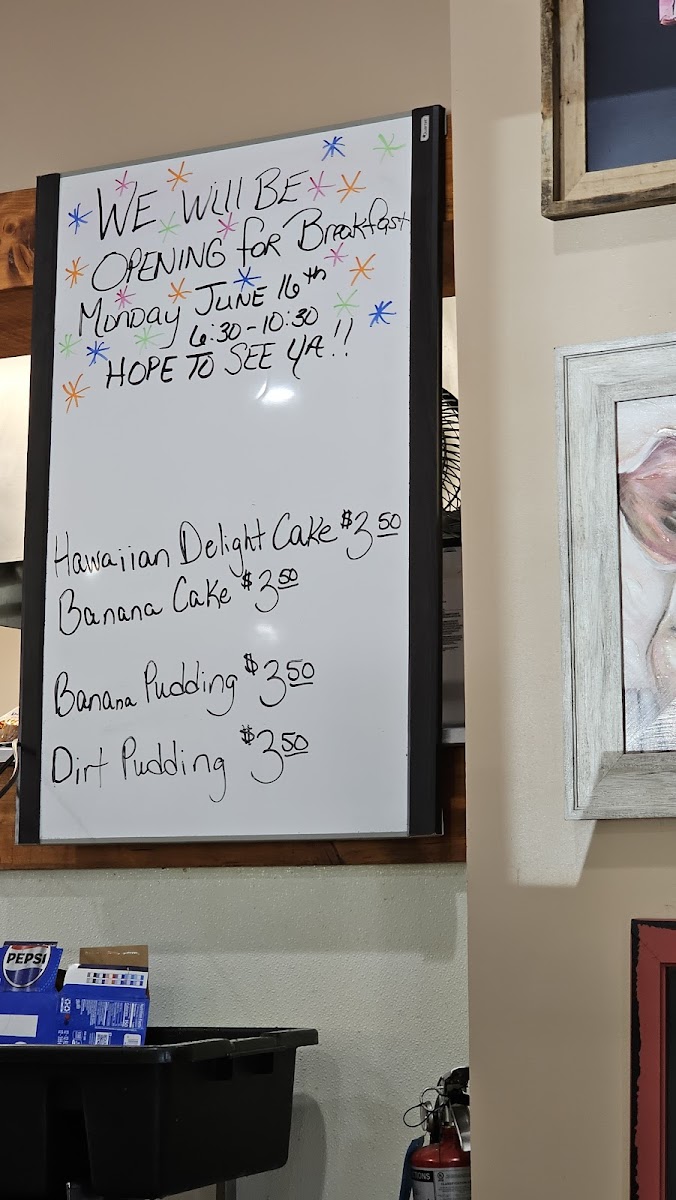 WE WILL BE
OPENING for Breakfast
Monday JUNE 16th
6:30-10:30
HOPE TO SEE YA!!
Hawaiian Delight Cake $3.50
Banana Cake $3.50
Banana Pudding $3.50
Dirt Pudding $3.50
PEPSI